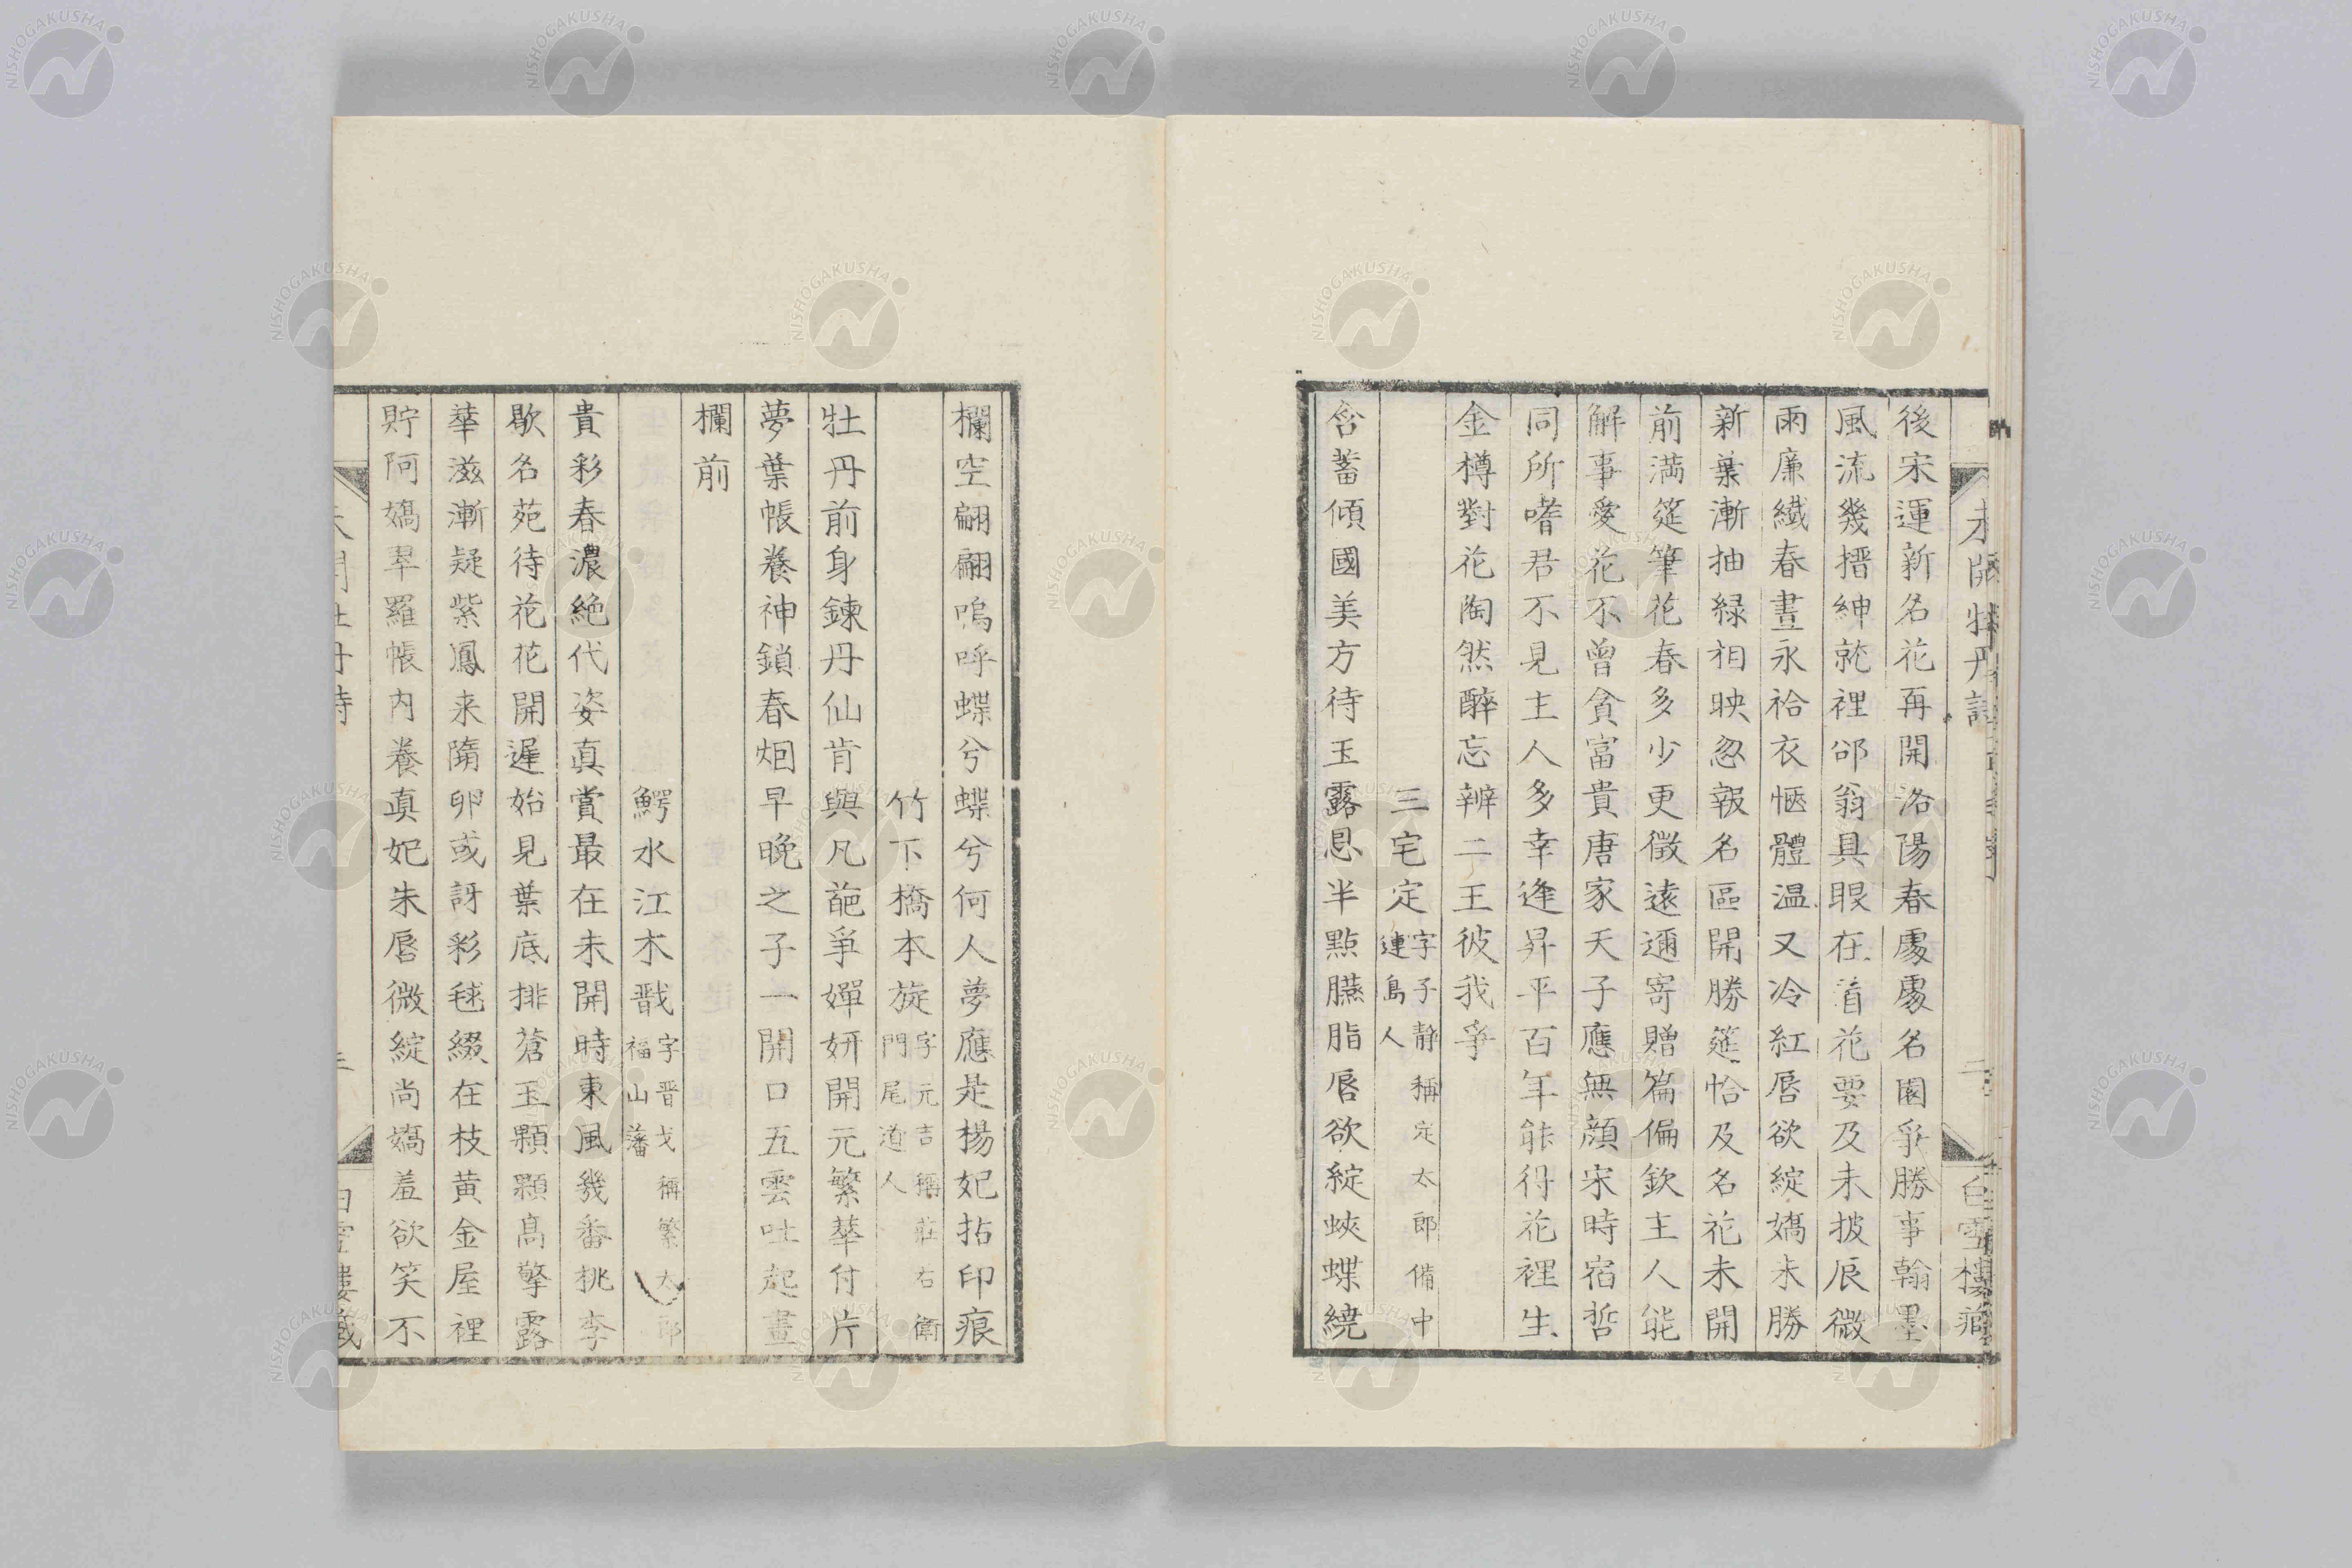 未開牡丹詩
二
白雪樓藏
後宋運新名花再開洛陽春處處名園爭勝事翰墨
風流幾搢紳就裡邵翁具眼在着花要及未披辰微
雨廉纖春晝永袷衣愜體温又冷紅唇欲綻嬌未勝
新葉漸抽緑相映忽報名區開勝筵恰及名花未開
前満筵筆花春多少更徵遠邇寄贈篇偏欽主人能
解事愛花不曾貪富貴唐家天子應無顔宋時宿哲
同所嗜君不見主人多幸逢昇平百年能得花裡生
金樽對花陶然醉忘辨二王彼我爭
三宅定 字子静稱定太郎備中連島人
含蓄傾國美方待玉露恩半點臙脂唇欲綻蛺蝶繞
欄空翩翩嗚呼蝶兮蝶兮何人夢應是楊妃拈印痕
竹下橋本旋 字元吉稱莊右衛門尾道人
牡丹前身錬丹仙肯與凡葩爭嬋妍開元繁華付片
夢葉帳養神鎖春烟早晩之子一開口五雲吐起畫
欄前
鰐水江木戩 字晋戈稱繁太郎福山藩
貴彩春濃絶代姿真賞最在未開時東風幾番桃李
歇名苑待花花開遲始見葉底排蒼玉顆顆高擎露
華滋漸疑紫鳳来隋卵或訝彩毬綴在枝黄金屋裡
貯阿嬌翠羅帳内養真妃朱唇微綻尚嬌羞欲笑不
NISHOGAKUSHA